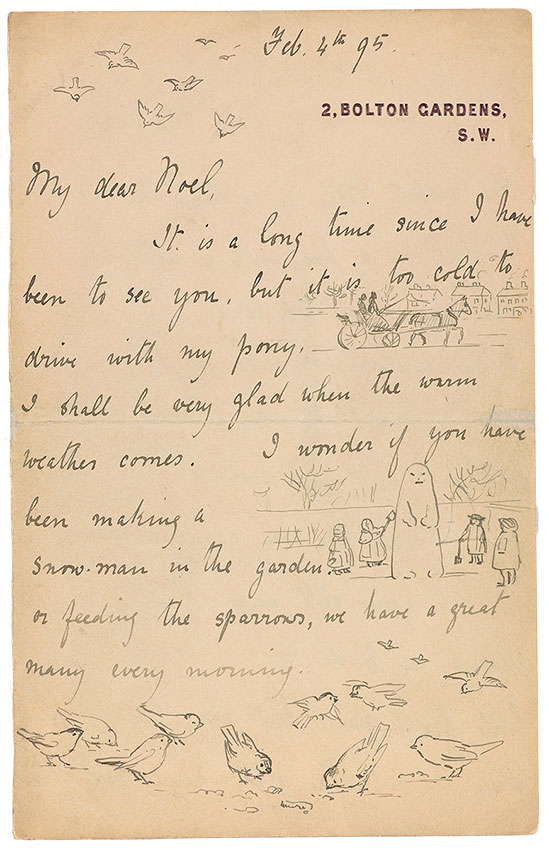 Feb. 4th 95.
2, BOLTON GARDENS,
S.W.
My dear Noel,
It is a long time since I have
been to see you, but it is too cold to
drive with my pony.
I shall be very glad when the warm
weather comes. I wonder if you have
been making a
snow-man in the garden
or feeding the sparrows, we have a great
many every morning.